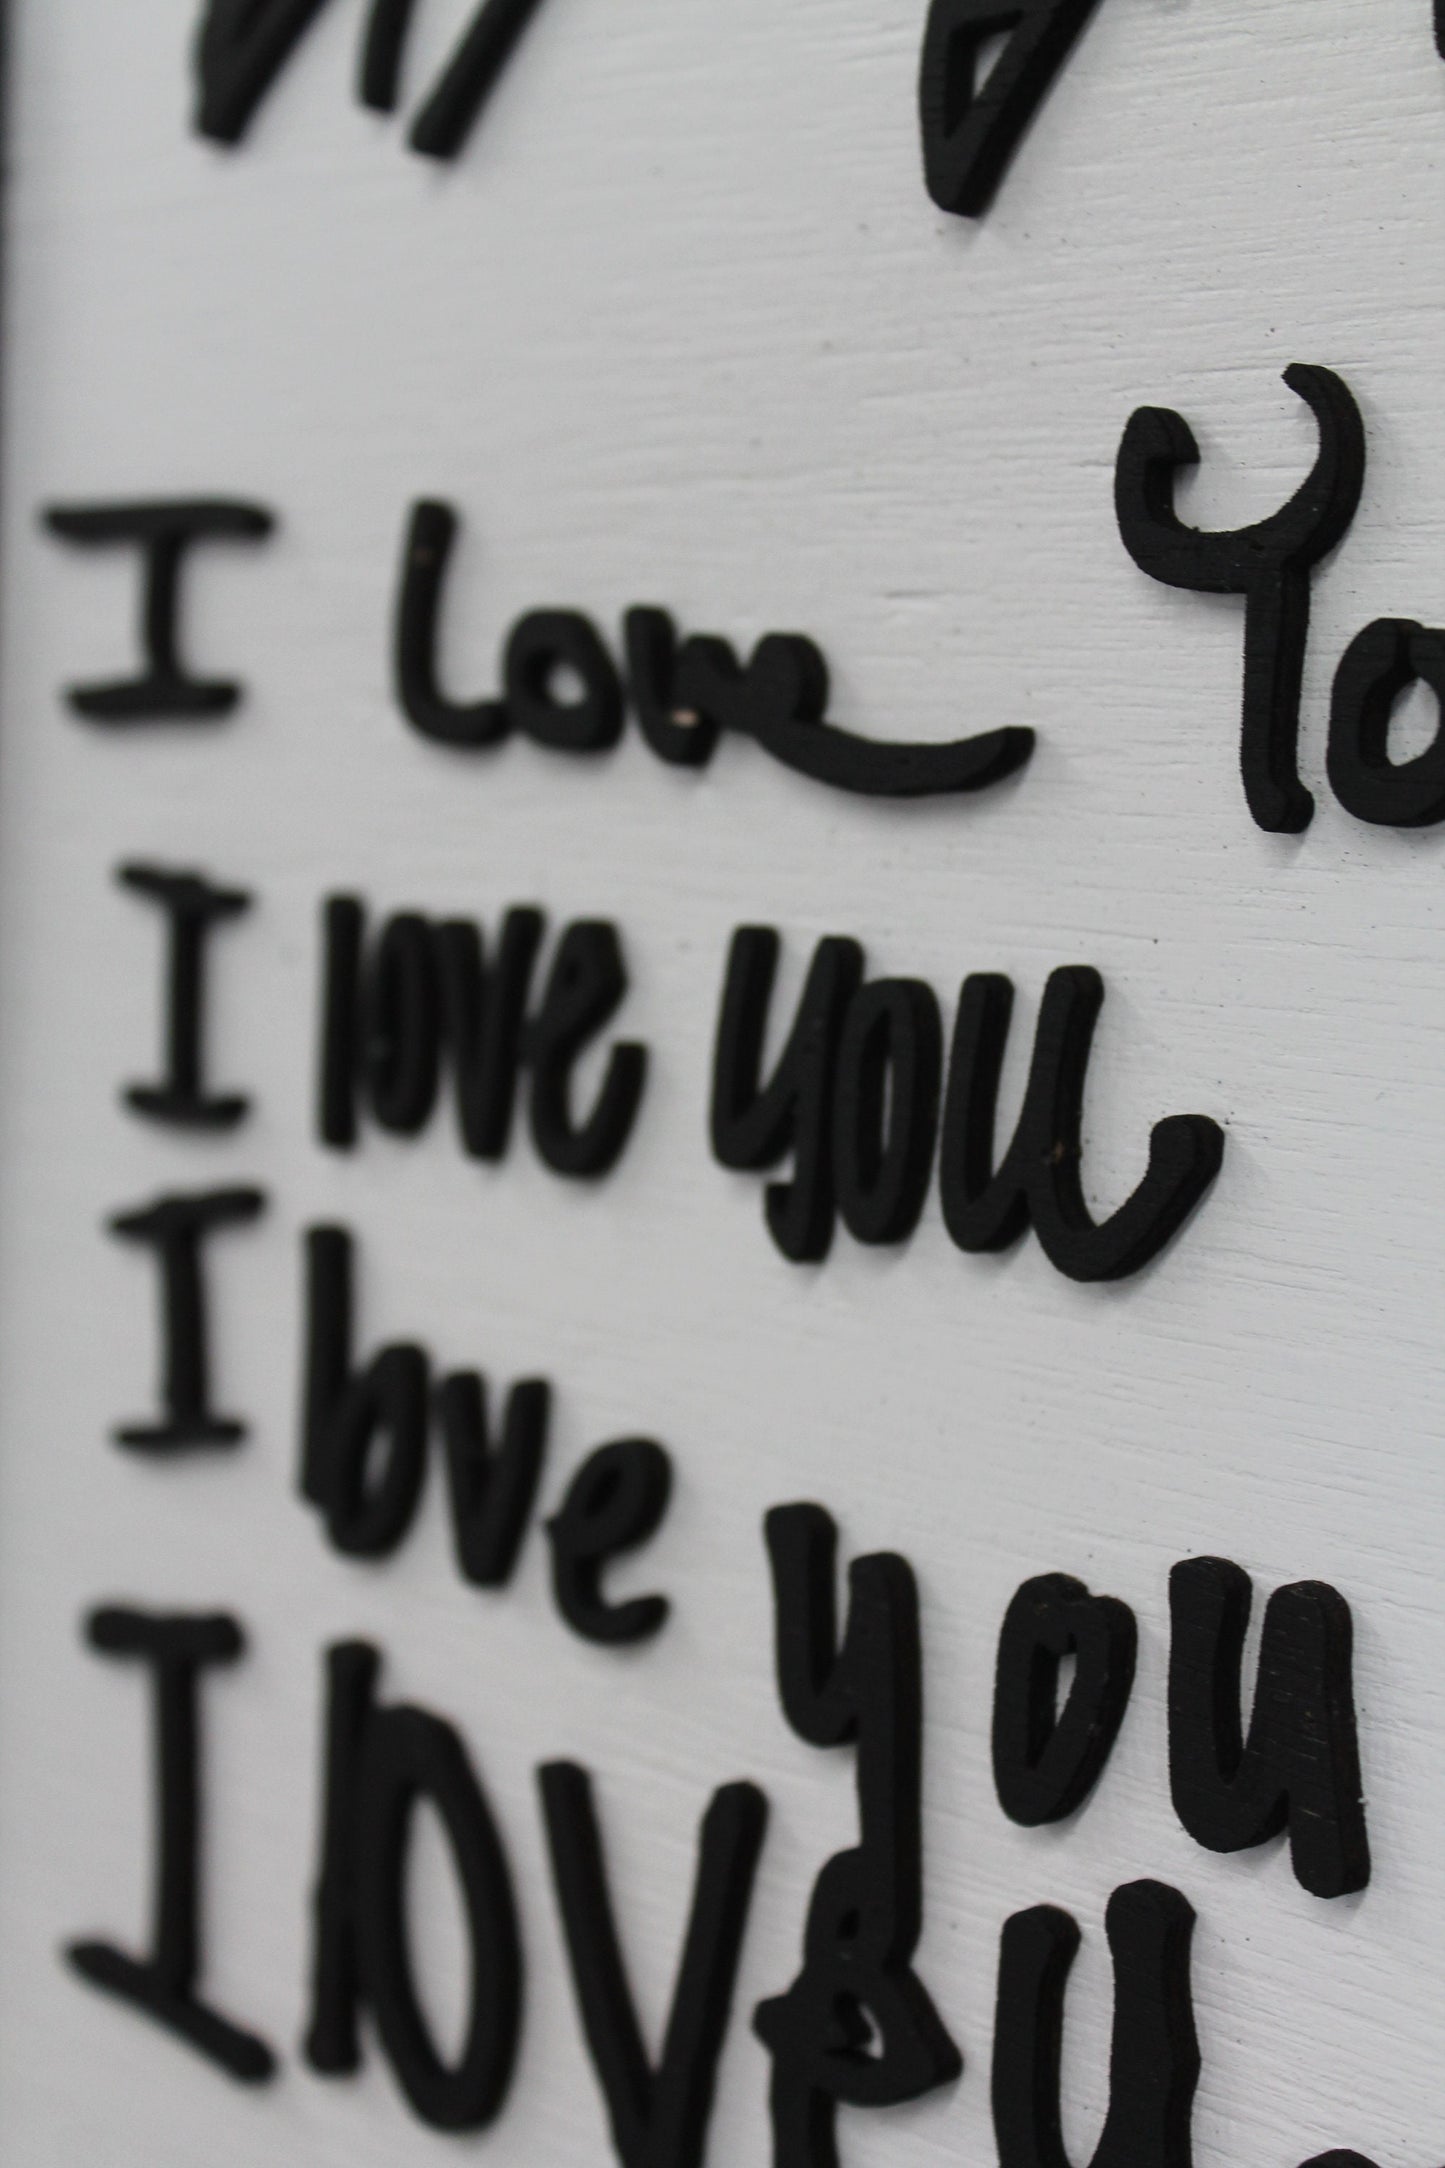 I love Yo
I love you
I love you
I love